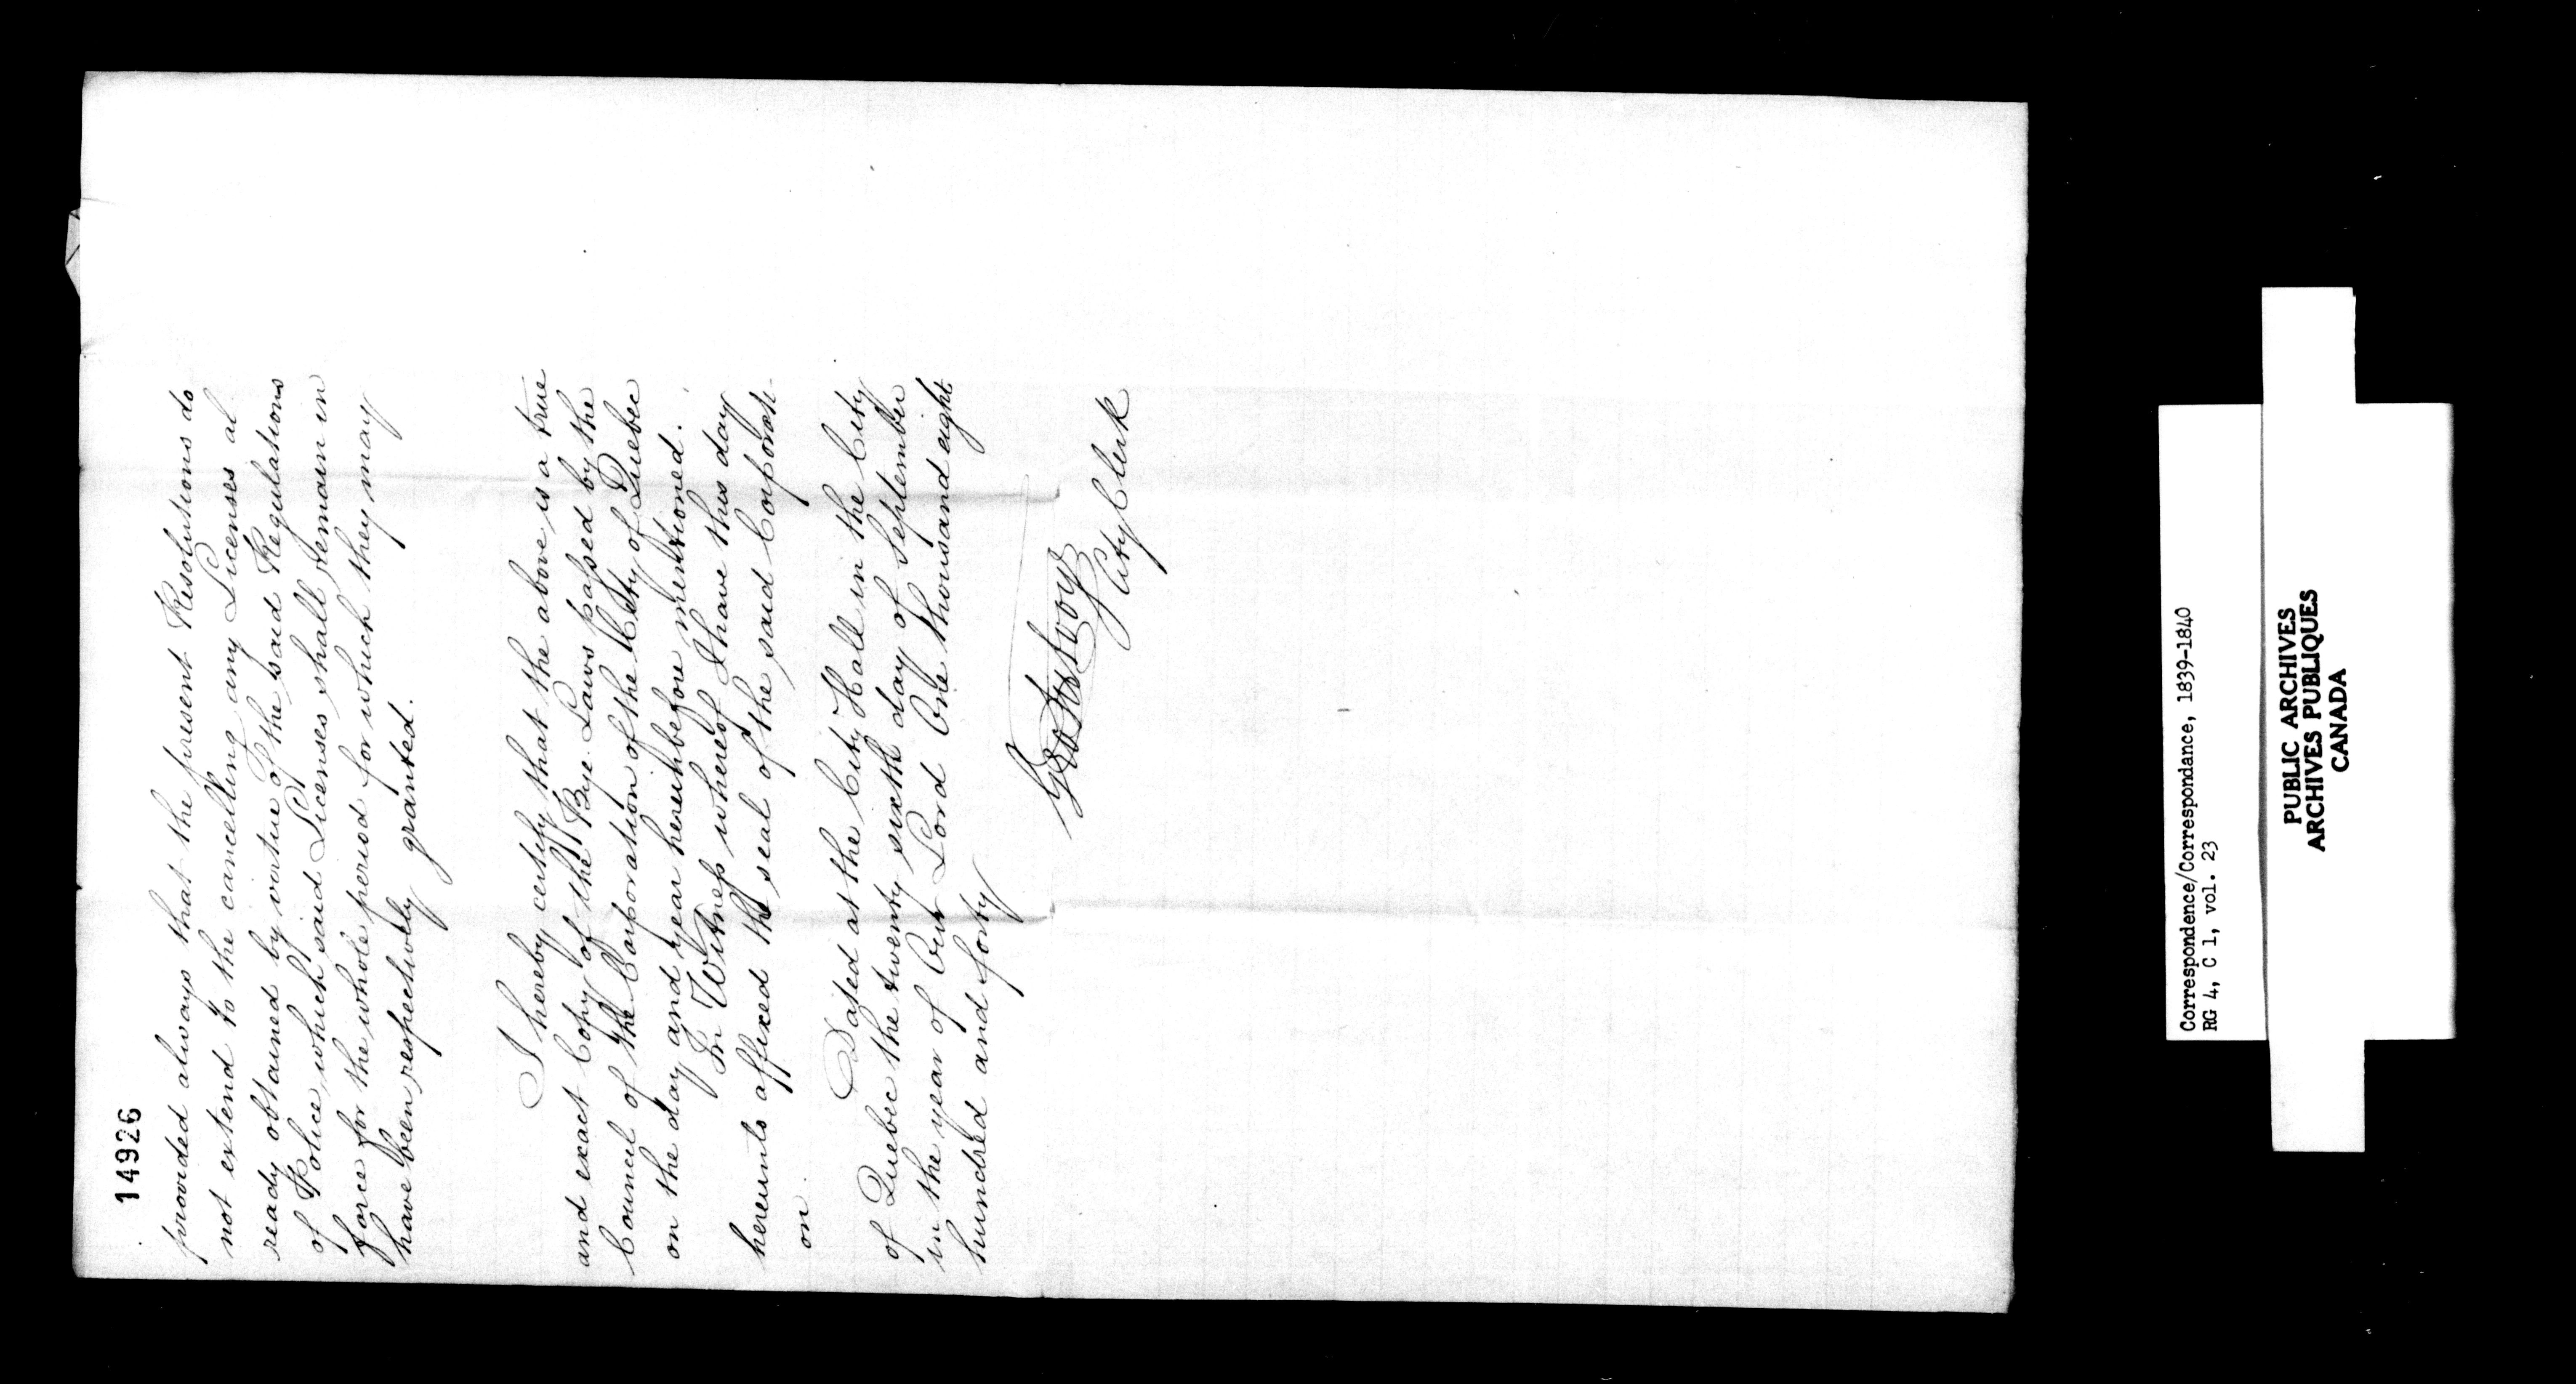 14926
provided always that the present Resolutions do
not extend to the cancelling any Licenses al
ready obtained by virtue of the said Regulations
of Police, which said Licenses shall remain in
force for the whole period for which they may
have been respectively granted.
I hereby certify that the above is a true
and exact Copy of the Bye-Laws passed by the
Council of the Corporation of the City of Quebec
on the day and year hereinbefore mentioned.
In Witness whereof I have this day
hereunto affixed the seal of the said Corporati-
on.
Dated at the City Hall in the City
of Quebec the twenty sixth day of September
in the year of Our Lord One thousand eight
hundred and forty
City Clerk
Correspondence/Correspondance, 1839-1840
RG 4, C 1, vol. 23
PUBLIC ARCHIVES
ARCHIVES PUBLIQUES
CANADA